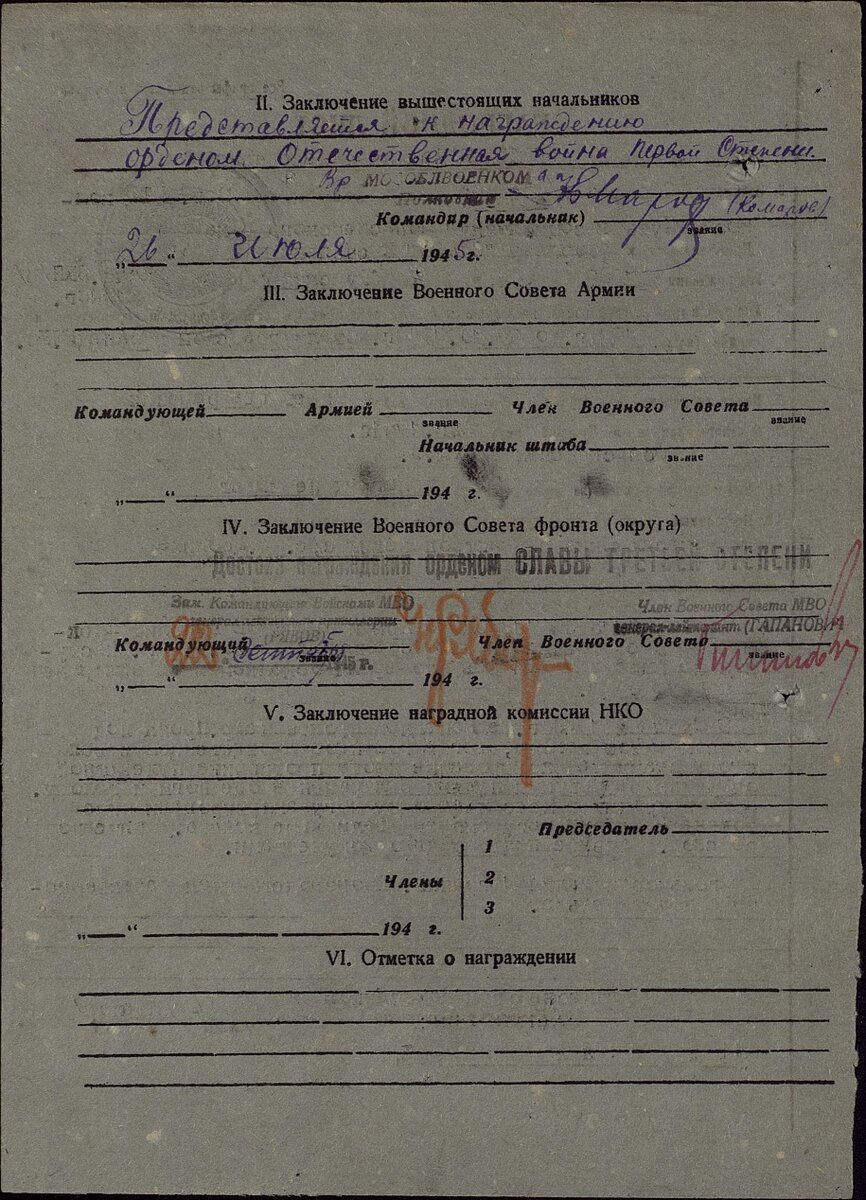 II. Заключение вышестоящих начальников
Представляется к награждению
орденом Отечественная война Первой Степени.
Вр МОСОБЛВОЕНКОМ
Полковник
Командир (начальник) (Комаров)
звание
„26“ Июля 1945 г.
III. Заключение Военного Совета Армии
Командующей Армией Член Военного Совета
звание звание
Начальник штаба
звание
„ “ 194 г.
IV. Заключение Военного Совета фронта (округа)
Достоин награждения орденом СЛАВЫ ТРЕТЬЕЙ СТЕПЕНИ
Зам. Командующего Войсками МВО Член Военного Совета МВО
генерал-лейтенант (ГАПАНОВИЧ)
Командующий Член Военного Совета
звание звание
„ “ 194 г.
V. Заключение наградной комиссии НКО
Председатель
Члены
1
2
3
„ “ 194 г.
VI. Отметка о награждении